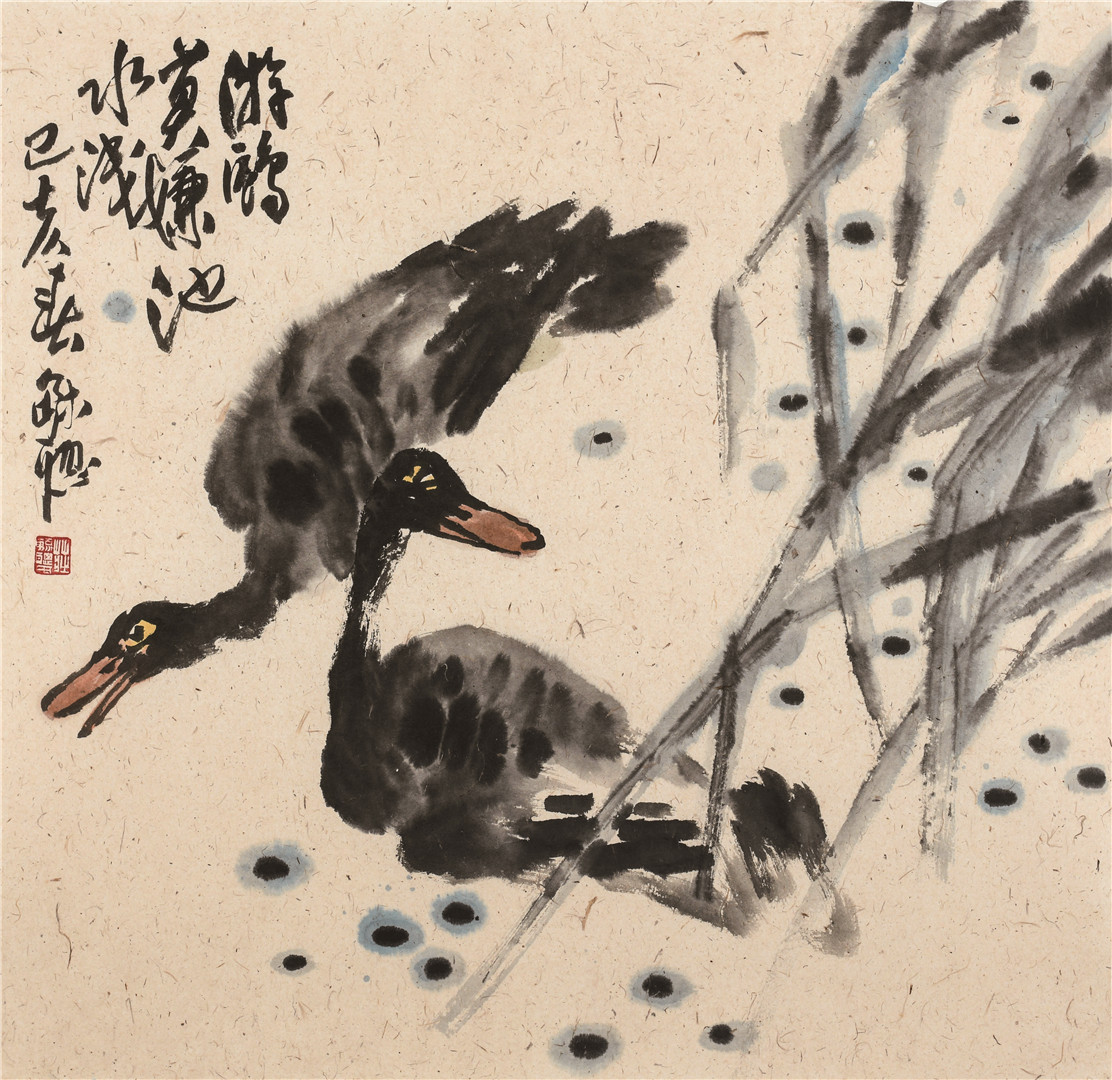 游鸥
莫嫌池
水浅
己亥春